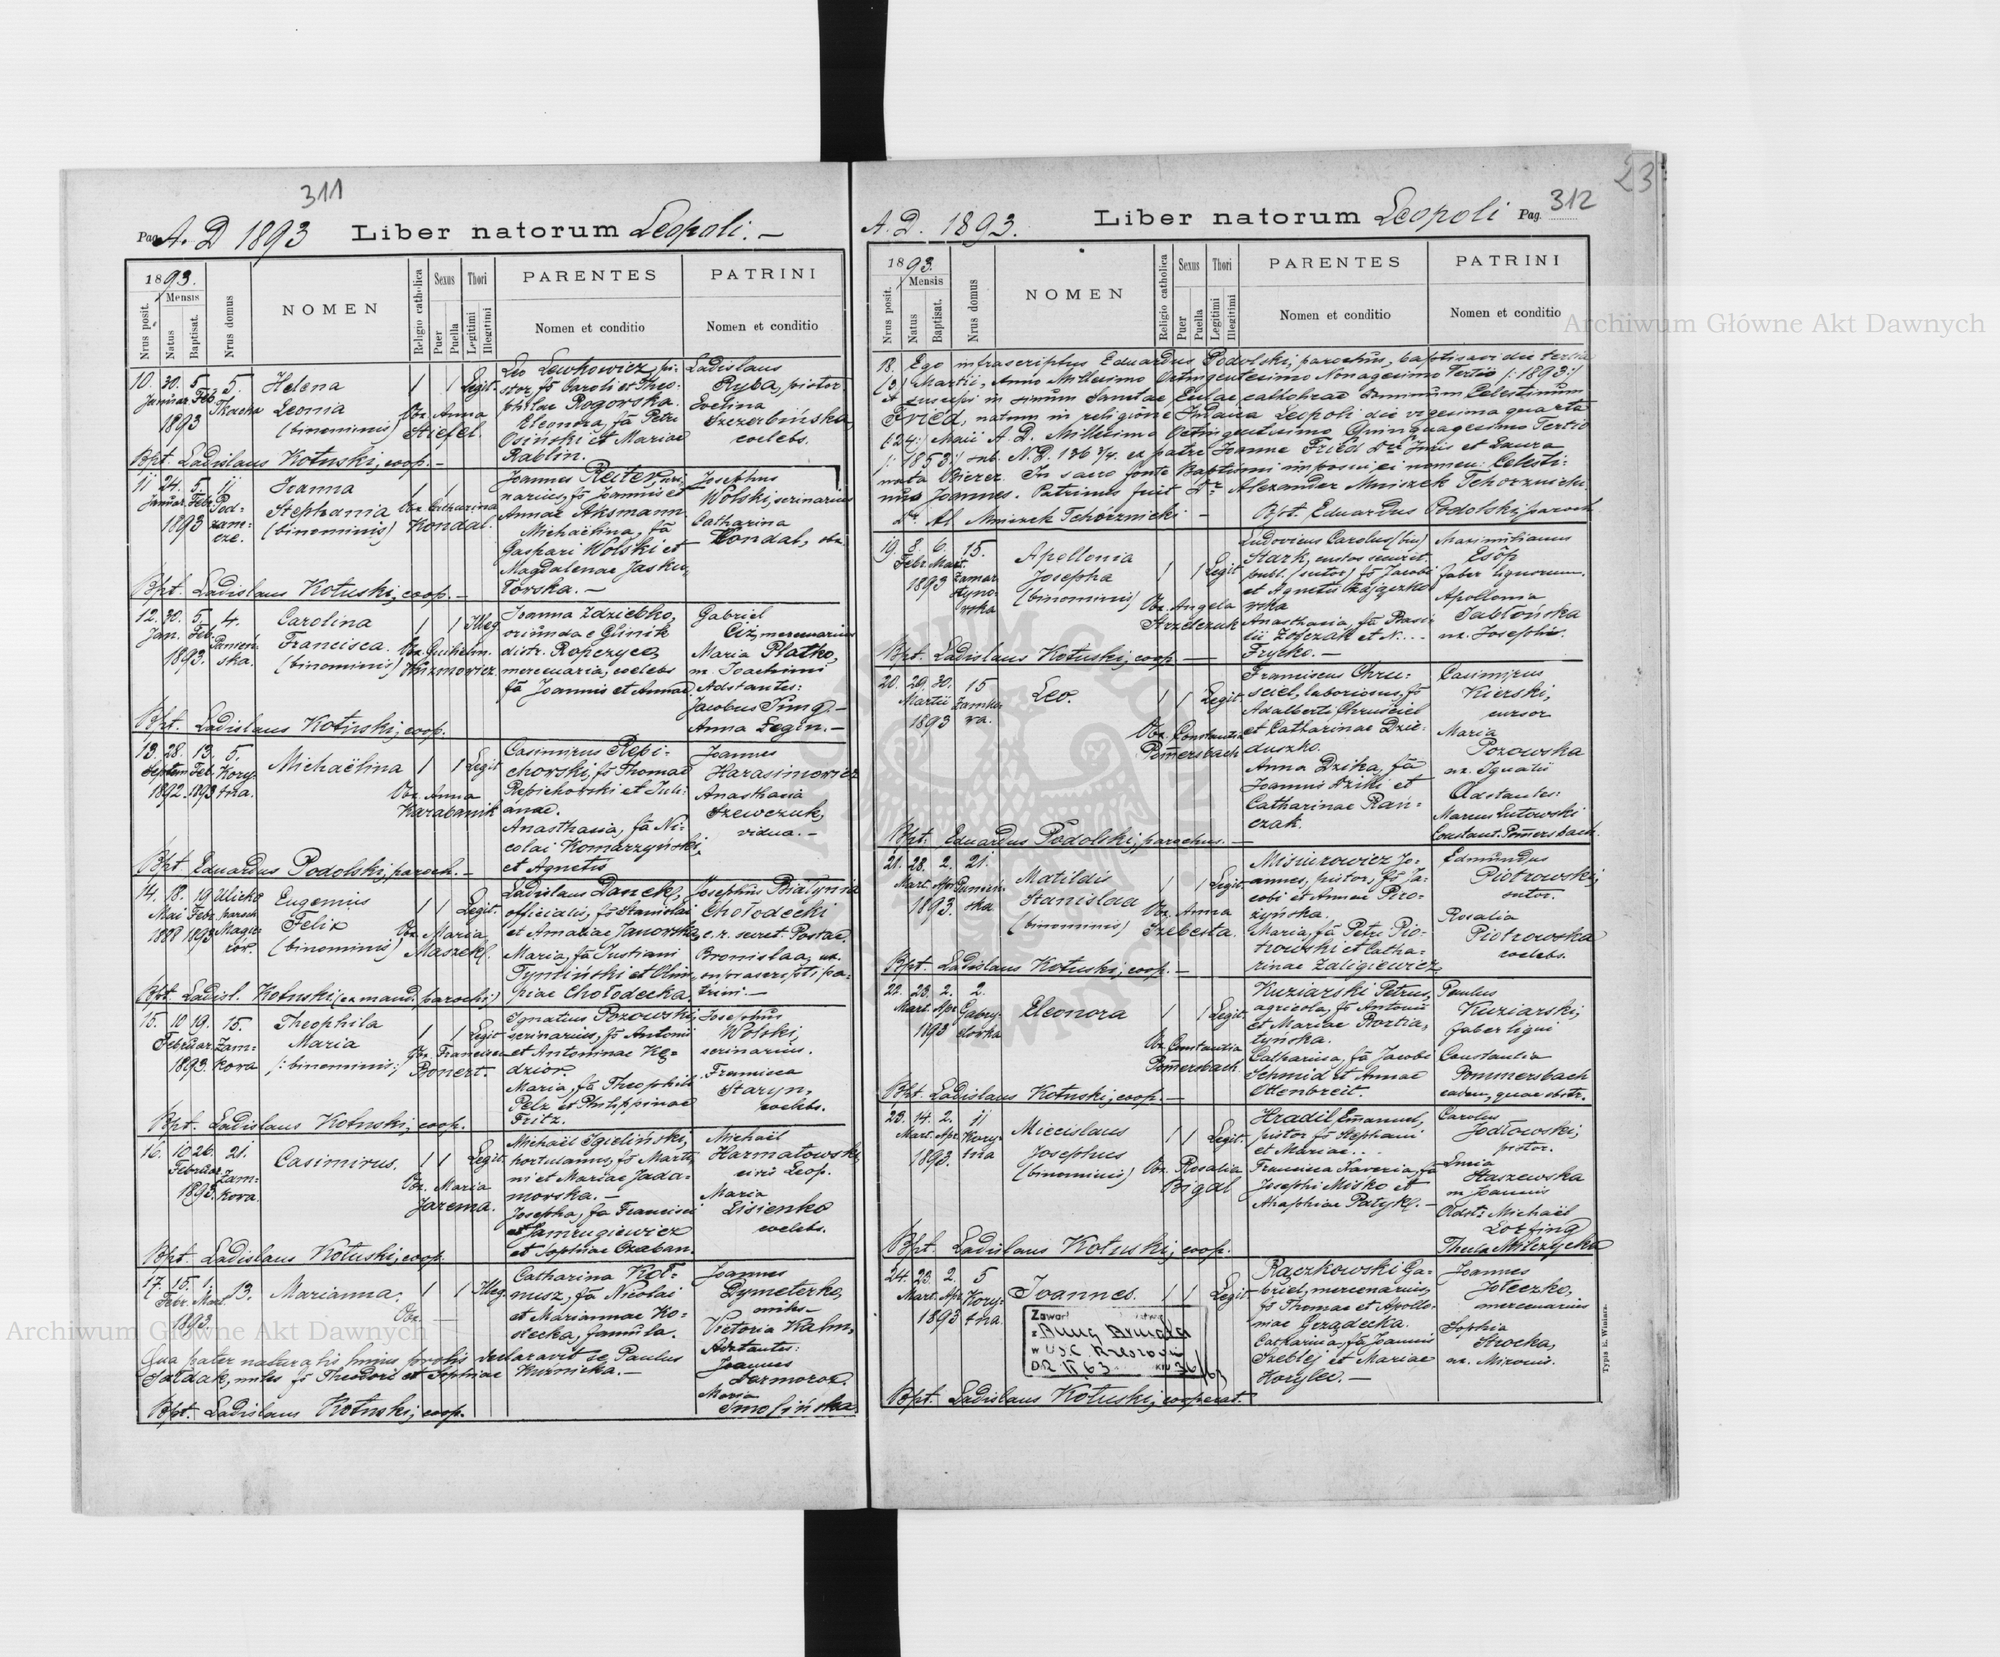 311
Pag. A. D 1893 Liber natorum Leopoli. —
1893.
Nrus posit.
Mensis
Natus
Baptisat.
Nrus domus
NOMEN
Religio catholica
Sexus
Puer
Puella
Thori
Legitimi
Illegitimi
PARENTES
Nomen et conditio
PATRINI
Nomen et conditio
10. 30. Januar 5 Feb 1893 5. Tkacka
Helena
Leonia
(binominis)
1 1 Legit.
Obz. Anna
Stiefel.
Leo Lewkowicz, pi-
stor, fs Caroli et Theo-
philae Rogorska.
Eleonora, fa Petri
Osiński et Mariae
Rablin.
Ladislaus
Ryba, pistor
Evelina
Szczerbińska,
coelebs.
Bpt. Ladislaus Kotuski, coop. —
11 24. Januar 5. Feb. 1893 11 Pod-
zam-
cze.
Joanna
Stephania
(binominis)
1 1
Obz. Catharina
Kondal.
Joannes Reiter, scri-
narius, fs Joannis et
Annae Aksmann.
Michaëlina, fa
Gaspari Wolski et
Magdalenae Jasku-
Torska. —
Josephus
Wolski, scrinarius
Catharina
Kondal, obz.
Bpt. Ladislaus Kotuski, coop. —
12. 30. Jan. 5. Feb. 1893. 4. Panień-
ska.
Carolina
Francisca.
(binominis)
1 1 Illeg
Obz. Guilhelm.
Joanna Zdziebko,
oriunda e Glinik
distr. Ropczyce,
mercenaria, coelebs
fa Joannis et Annae
Gabriel
Ciz, mercenarius
Maria Platko,
m. Joachimi
Adstantes:
Jacobus Pung. —
Anna Legin. —
Bpt. Ladislaus Kotuski, coop.
13. 28. Septem 1892. 13. Feb. 1893 5. Kory-
tna.
Michaëlina
1 1 Legit
Obz. Anna
Karabanik
Casimirus Repi-
chorski, fs Thomae
Repichorski et Juli-
anae.
Anasthasia, fa Ni-
colai Komarzyński,
et Agnetis
Joannes
Harasimowicz
Anasthasia
Szewczuk,
vidua. —
Bpt Eduardus Podolski, paroch. —
14. 18. Mai 1888 19 Febr. 1893 Ulicko
Eugenius
Felix
(binominis)
1 1 Legit.
Obz. Maria
Maszek.
Ladislaus Danek,
officialis, fs Stanislai
et Amaliae Janorska,
Maria, fa Justiani
Tymiński et Olim-
piae Chołodecka.
Josephus Białynia
Chołodecki
c. r. secret. Postae.
Bronislaa, ux.
suprascripti pa-
trini —
Bpt. Ladisl. Kotuski (ex mand. parochi)
15. 10 Februar. 19. 1893. 15. Zam-
kova
Theophila
Maria
/: binominis :/
1 1 Legit
Obz. Francisca
Bonert.
Ignatius Pozowski,
scrinarius, fs Antonii
et Antoninae Kę-
dzior.
Maria, fa Theophili
Pelz et Philippinae
Fritz.
Josephus
Wolski,
scrinarius.
Francisca
Staryn,
coelebs.
Bpt. Ladislaus Kotuski, coop.
16. 10 Februar 26. 1893. 21. Zam-
kova
Casimirus.
1 1 Legit.
Obz. Maria
Jarema.
Michaël Igielinski,
hortulanus, fs Marti-
ni et Mariae Jada-
morska. —
Josepha, fa Francisci
et Sophiae Czaban.
Michaël
Harmatowski,
civis Leop.
Maria
Lisienko
coelebs.
Bpt. Ladislaus Kotuski, coop.
17. 15. Febr. 1. Mart. 1893. 13.
Marianna.
1 1 Illeg
Obz. —
Catharina Kot-
nusz, fa Nicolai
et Mariannae Ko-
stecka, famula.
Joannes
Dymeterko,
miles —
Victoria Kahn,
Adstantes:
Joannes
Maria
Smolińska
Qua pater naturalis hujus prolis declaravit se Paulus
Sardak, miles fs Theodori et Sophiae Kuśnicka. —
Bpt. Ladislaus Kotuski, coop.
23
A. D. 1893. Liber natorum Leopoli Pag. 312
1893.
Nrus posit.
Mensis
Natus
Baptisat.
Nrus domus
NOMEN
Religio catholica
Sexus
Puer
Puella
Thori
Legitimi
Illegitimi
PARENTES
Nomen et conditio
PATRINI
Nomen et conditio
18. Ego infrascriptus Eduardus Podolski, parochus, baptisavi die tertia
(3) Martii, Anno Millesimo Octingentesimo Nonagesimo Tertio /: 1893 :/
et suscepi in sinum sanctae Eulae catholicae Dominum Celestinum
Fried, natum in religione Judaica Leopoli die vigesima quarta
(:24:) Maii A. D. Millesimo Octingentesimo Quinquagesimo Tertio
/: 1853 :/ sub. N. D. 136 3/4. ex patre Joanne Fried Dre Juris et Laura
nata Bierer. In sacro fonte baptismi imposui ei nomen: Celesti-
nus Joannes. Patrinus fuit Dr. Alexander Mniszek Tchorznicki.
Dr. Al Mniszek Tchórznicki — Bpt. Eduardus Podolski, paroch
19. 8. Febr 6. Mart. 1893 15. Zamar-
styno-
wska
Apollonia
Josepha
(binominis)
1 1 Legit
Obz. Angela
Strzelczuk
Ludovicus Carolus (bin)
Stark, custos securit.
publ. (sutor) fs Jacobi
Anasthasia, fa Basi-
lii Zołczak et N. . .
Frycko. —
Maximilianus
Esöp
faber lignorum.
Apollonia
Jabłońska
ux. Josephi.
Bpt. Ladislaus Kotuski, coop —
20. 29. Martii 30. 1893 15 Zamko-
va.
Leo.
1 1 Legit
Obz. Constantia
Pommersbach
Franciscus Chru-
sciel, laboriosus, fs
Adalberti Chruściel
et Catharinae Dzie-
duszko.
Anna Dzika, fa
Joannis Dziki et
Catharinae Rań-
czak.
Casimirus
Kierski,
cursor
Maria
Pozowska
ux. Ignatii
Adstantes:
Marcus Lutowski
Constant. Pommersbach.
Bpt. Eduardus Podolski, parochus. —
21. 28. Mart. 2. Apr. 1893. 21. Panień-
ska
Matildis
Stanislaa
(binominis)
1 1 Legit.
Obz. Anna
Szebesta.
Misiurowicz Jo-
annes, pistor, fs Ja-
cobi et Annae Pro-
zyńska.
Maria, fa Petri Pio-
trowski et Catha-
rinae Zaligiewicz.
Edmundus
Piotrowski,
sutor.
Rosalia
Piotrowska
coelebs.
Bpt. Ladislaus Kotuski, coop. —
22. 23. Mart. 2. Apr. 1893 2. Gabry-
elovka
Eleonora
1 1 Legit.
Obz. Constantia
Pommersbach
Kuziarski Petrus,
agricola, fs Antonii
et Mariae Bortia-
tyńska.
Catharina, fa Jacobi
Schmid et Annae
Ottenbreit.
Paulus
Kuziarski,
faber ligni
Constantia
Pommersbach
eadem, quae obstr.
Bpt. Ladislaus Kotuski, coop. —
23. 14. Mart. 2. Apr. 1893. 11 Kory-
tna
Miecislaus
Josephus
(binominis)
1 1 Legit.
Obz. Rosalia
Bigal
Hradil Emanuel,
pistor fs Stephani
et Mariae . . .
Francisca Xaveria, fa
Josephi Misko et
Anasphiae Patyk. —
Carolus
Jodłowski,
pistor.
Lucia
Staszewska
m Joannis
Adst: Michaël
Lorfing
Thecla Milczycka
Bpt. Ladislaus Kotuski, coop.
24. 23. Mart. 2. Apr. 1893 5 Kory-
tna.
Joannes.
1 1 Legit
Rączkowski Ga-
briel, mercenarius,
fs Thomae et Apollo-
niae Grządecka.
Catharina, fa Joannis
Szeblej et Mariae
Horyley. —
Joannes
Joteczko,
mercenarius
Sophia
Stocka,
ux. Mironis.
Bpt. Ladislaus Kotuski, cooperat.
Typis E. Winiarz.
Archiwum Główne Akt Dawnych
Archiwum Główne Akt Dawnych